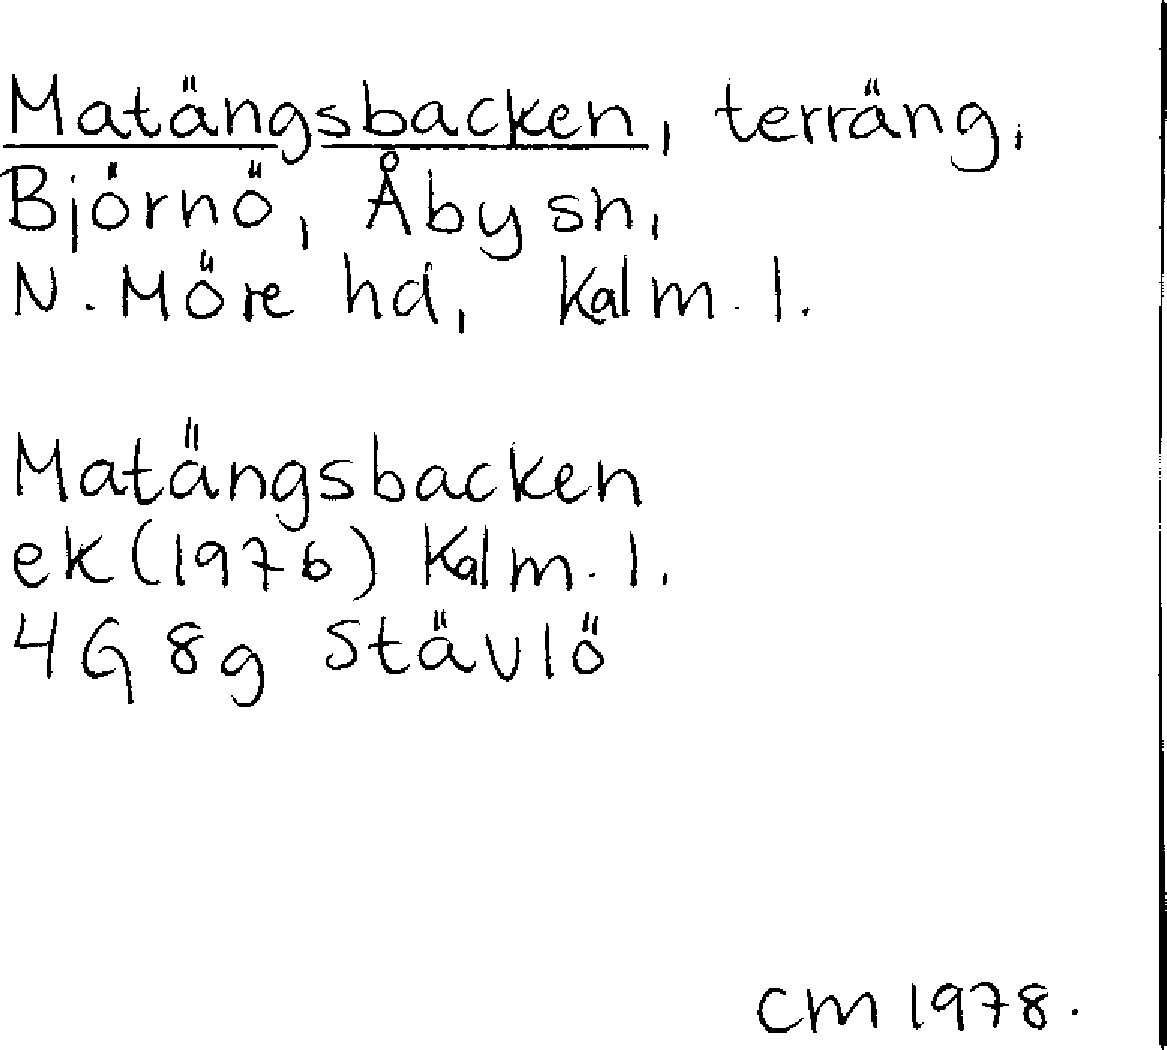 Matängsbacken, terräng,
Björnö, Åby sn,
N. Möre hd, Kalm. l.
Matängsbacken
ek (1976) Kalm. l.
4G 8g Stävlö
CM 1978.